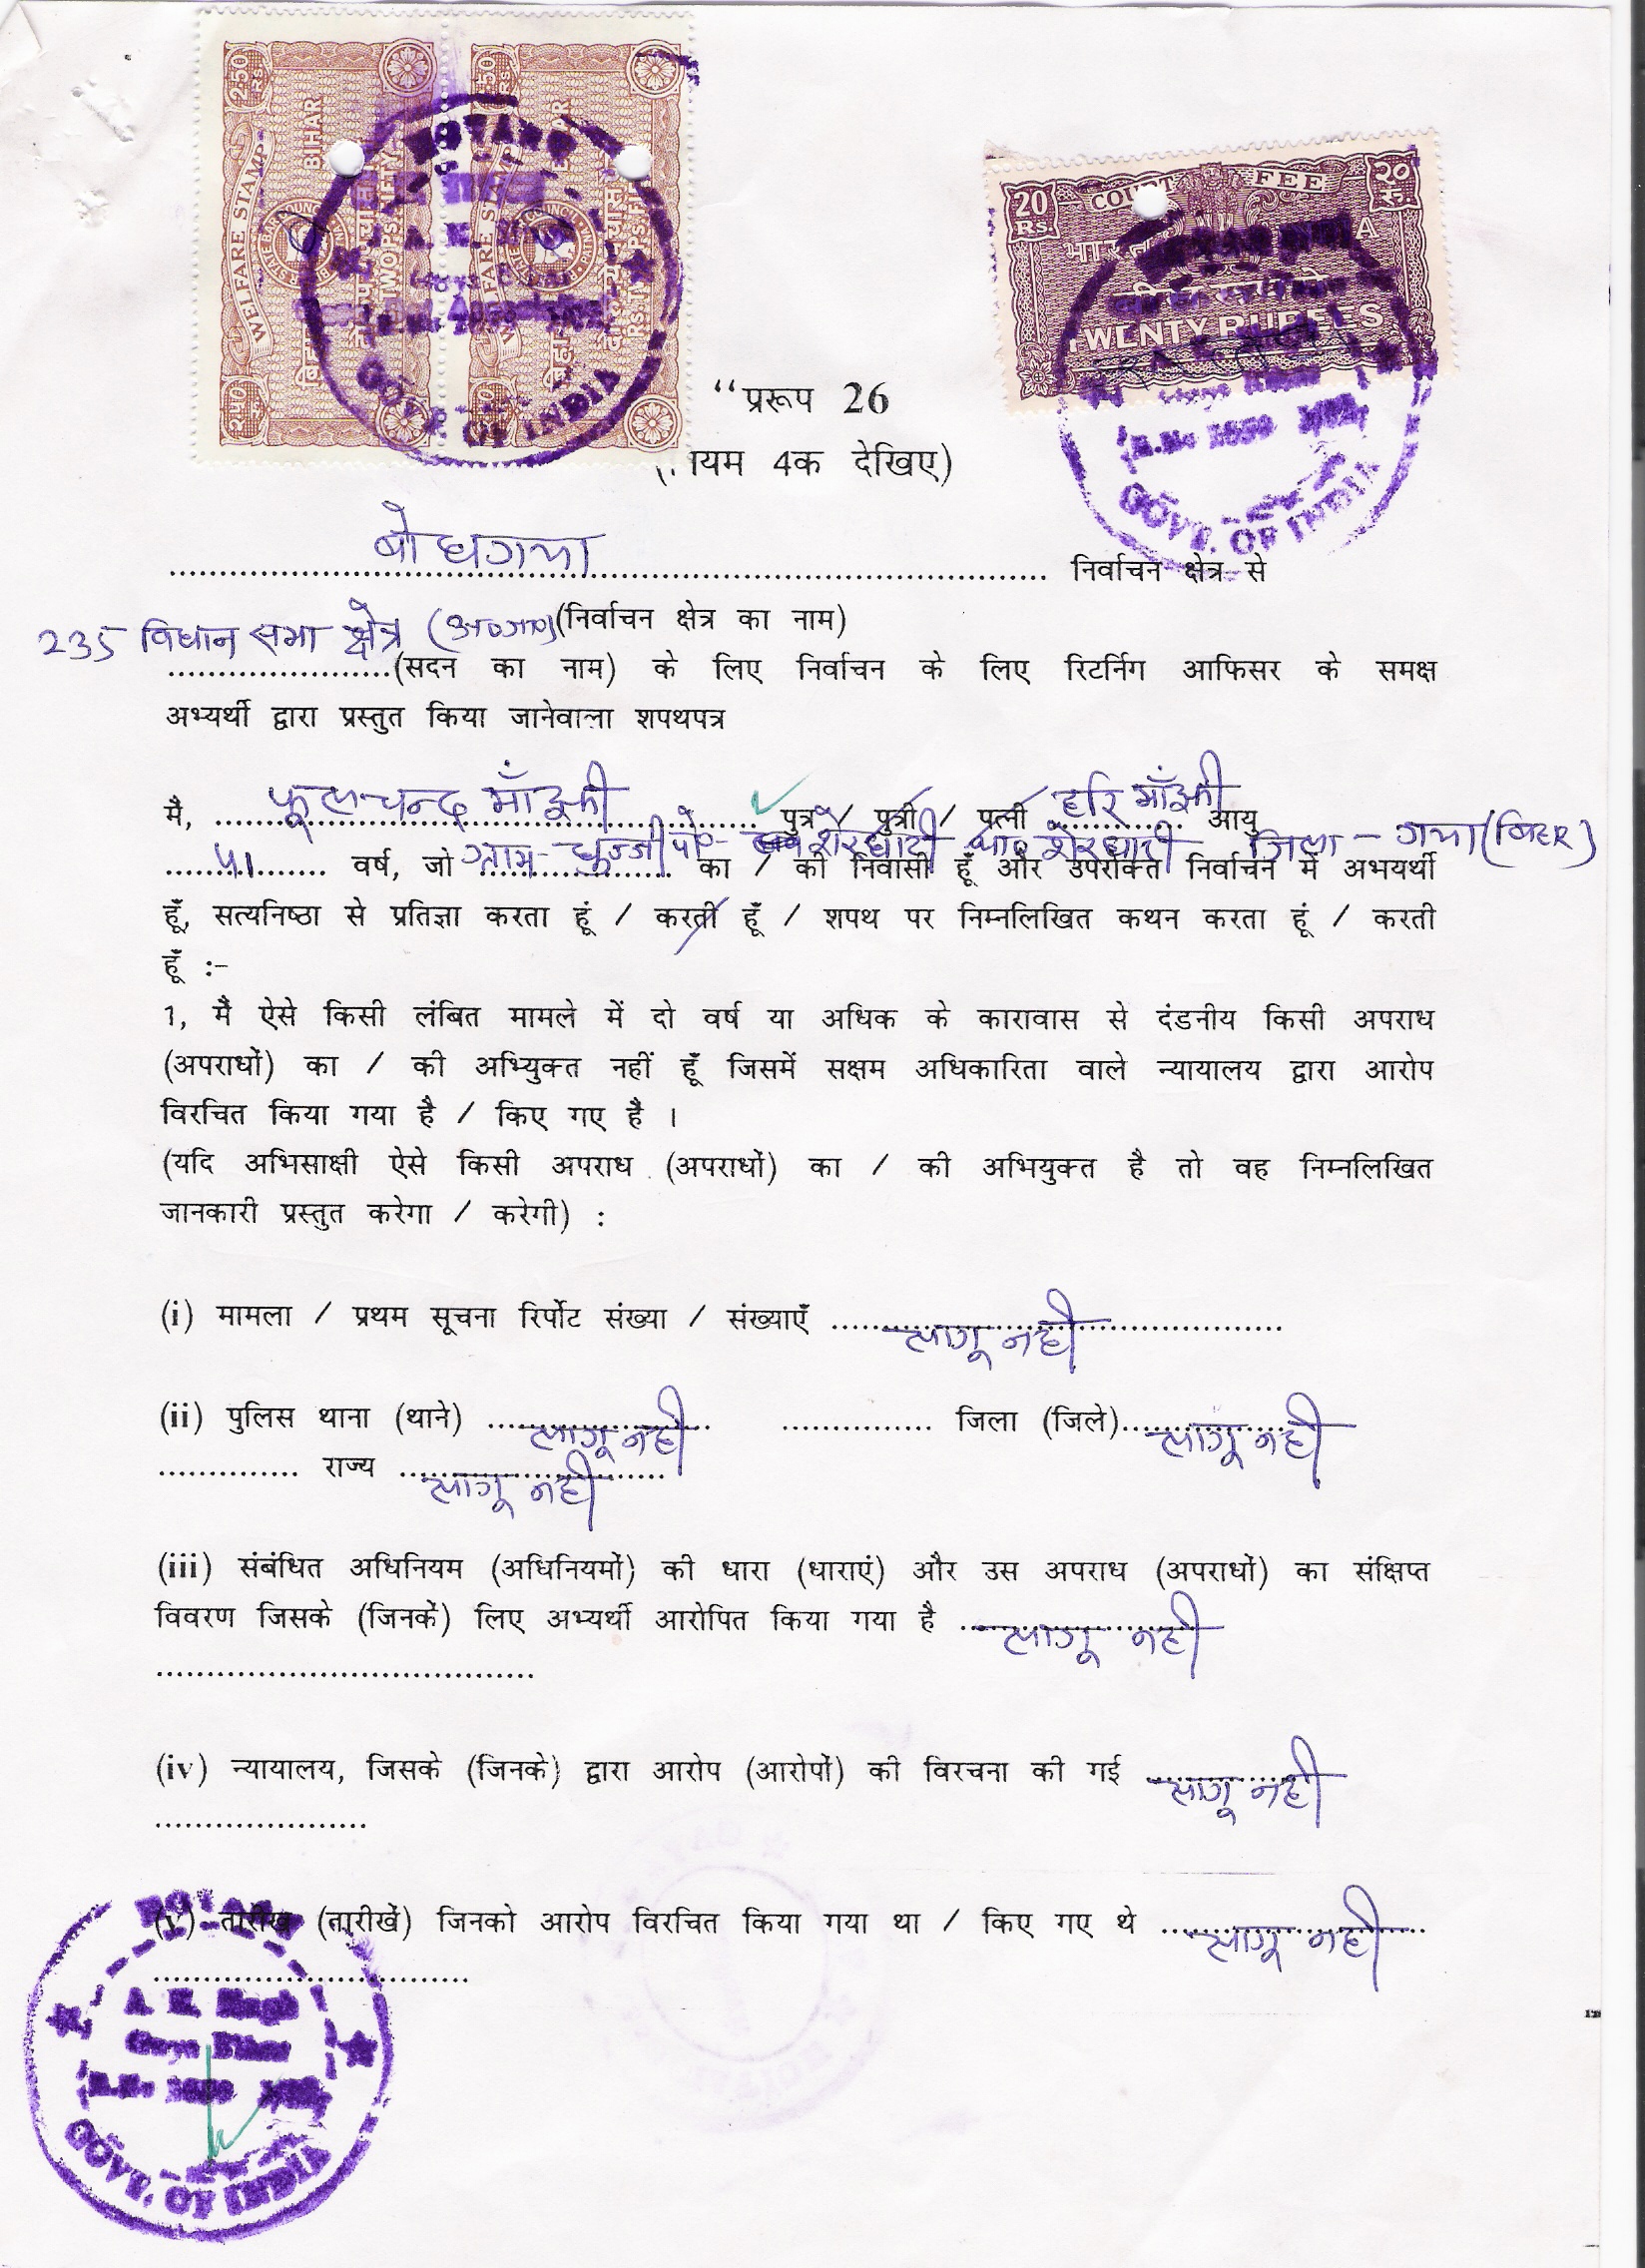 2.50 Rs. WELFARE STAMP BIHAR
20 Rs. COURT FEE २० रु.
TWENTY RUPEES
NOTARY
GOVT. OF INDIA
GOVT. OF INDIA
“प्ररूप 26
यम 4क देखिए)
बोधगया
निर्वाचन क्षेत्र से
235 विधान सभा क्षेत्र (निर्वाचन क्षेत्र का नाम)
......................(सदन का नाम) के लिए निर्वाचन के लिए रिटर्निग आफिसर के समक्ष
अभ्यर्थी द्वारा प्रस्तुत किया जानेवाला शपथपत्र
मै, फूलचन्द माँझी पुत्र / पुत्री / पत्नी हरि माँझी आयु
वर्ष, जो ग्राम- पो०- शेरघाटी थाना शेरघाटी जिला - गया (बिहार) का / की निवासी हूँ और उपरोक्त निर्वाचन में अभयर्थी
हूँ, सत्यनिष्ठा से प्रतिज्ञा करता हूं / करती हूँ / शपथ पर निम्नलिखित कथन करता हूं / करती
हूँ :–
1, मैं ऐसे किसी लंबित मामले में दो वर्ष या अधिक के कारावास से दंडनीय किसी अपराध
(अपराधों) का / की अभियुक्त नहीं हूँ जिसमें सक्षम अधिकारिता वाले न्यायालय द्वारा आरोप
विरचित किया गया है / किए गए हैं ।
(यदि अभिसाक्षी ऐसे किसी अपराध (अपराधों) का / की अभियुक्त है तो वह निम्नलिखित
जानकारी प्रस्तुत करेगा / करेगी) :
(i) मामला / प्रथम सूचना रिर्पोट संख्या / संख्याएँ लागू नही
(ii) पुलिस थाना (थाने) लागू नही जिला (जिले) लागू नही
.............. राज्य लागू नही
(iii) संबंधित अधिनियम (अधिनियमों) की धारा (धाराएं) और उस अपराध (अपराधों) का संक्षिप्त
विवरण जिसके (जिनके) लिए अभ्यर्थी आरोपित किया गया है लागू नही
(iv) न्यायालय, जिसके (जिनके) द्वारा आरोप (आरोपों) की विरचना की गई लागू नही
(v) तारीख (तारीखें) जिनको आरोप विरचित किया गया था / किए गए थे लागू नही
GOVT. OF INDIA